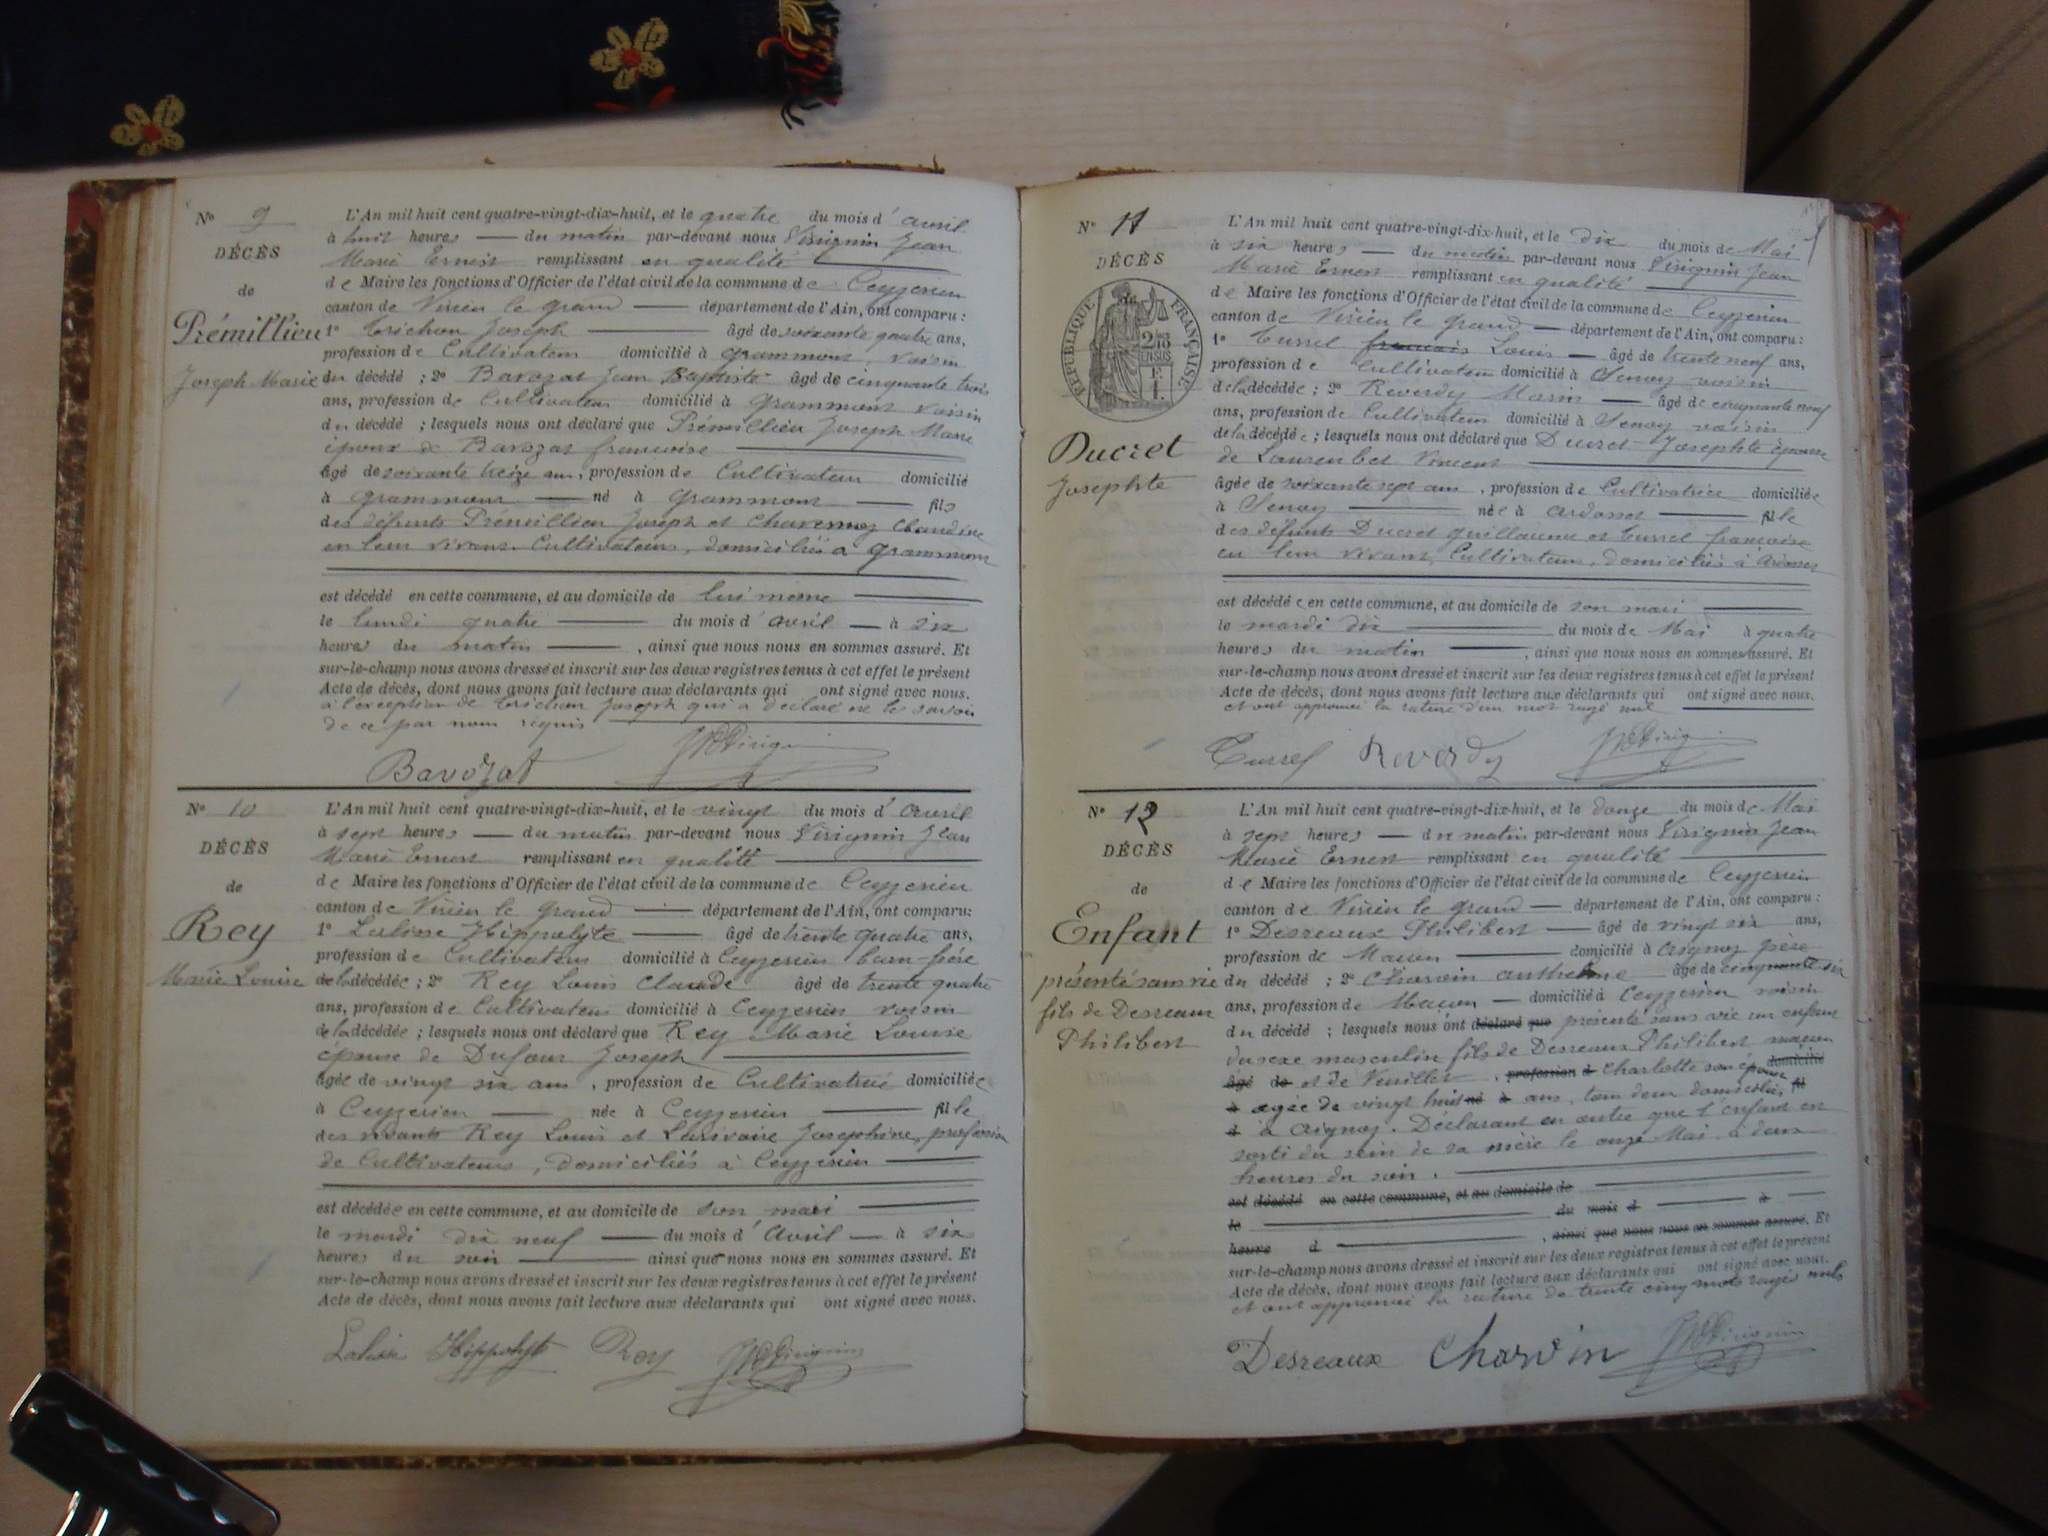 N° 9
DÉCÈS
de
Prémillieu
Joseph Marie
L'An mil huit cent quatre-vingt-dix-huit, et le quatre du mois d'avril
à huit heures du matin par-devant nous Virignin Jean
Marie Ernest remplissant en qualité
de Maire les fonctions d'Officier de l'état civil de la commune de Ceyzerieu
canton de Virieu le grand département de l'Ain, ont comparu :
1° Trichon Joseph âgé de soixante quatre ans,
profession de Cultivateur domicilié à grammont, voisin
du décédé ; 2° Barozat Jean Baptiste âgé de cinquante trois
ans, profession de Cultivateur domicilié à grammont voisin
du décédé ; lesquels nous ont déclaré que Prémillieu Joseph Marie
époux de Barozat françoise
âgé de soixante treize ans, profession de Cultivateur domicilié
à grammont né à grammont fils
des défunts Prémillieu Joseph et Charennoz Claudine
en leur vivant Cultivateurs, domiciliés à grammont
est décédé en cette commune, et au domicile de lui même
le lundi quatre du mois d'avril à six
heures du matin, ainsi que nous nous en sommes assuré. Et
sur-le-champ nous avons dressé et inscrit sur les deux registres tenus à cet effet le présent
Acte de décès, dont nous avons fait lecture aux déclarants qui ont signé avec nous.
à l'exception de Trichon Joseph qui a déclaré ne le savoir
de ce par nous requis
Barozat JMEVirignin
N° 10
DÉCÈS
de
Rey
Marie Louise
L'An mil huit cent quatre-vingt-dix-huit, et le vingt du mois d'avril
à sept heures du matin par-devant nous Virignin Jean
Marie Ernest remplissant en qualité
de Maire les fonctions d'Officier de l'état civil de la commune de Ceyzerieu
canton de Virieu le grand département de l'Ain, ont comparu :
1° Lalisse Hippolyte âgé de trente quatre ans,
profession de Cultivateur domicilié à Ceyzerieu beau-frère
de la décédée ; 2° Rey Louis Claude âgé de trente quatre
ans, profession de Cultivateur domicilié à Ceyzerieu voisin
de la décédée ; lesquels nous ont déclaré que Rey Marie Louise
épouse de Dufour Joseph
âgée de vingt six ans, profession de Cultivatrice domiciliée
à Ceyzerieu née à Ceyzerieu fille
des vivants Rey Louis et Josephine, profession
de Cultivateurs, domiciliés à Ceyzerieu
est décédée en cette commune, et au domicile de son mari
le mardi dix neuf du mois d'Avril à six
heures du soir ainsi que nous nous en sommes assuré. Et
sur-le-champ nous avons dressé et inscrit sur les deux registres tenus à cet effet le présent
Acte de décès, dont nous avons fait lecture aux déclarants qui ont signé avec nous.
Lalisse Hippolyte Rey JMEVirignin
N° 11
DÉCÈS
de
RÉPUBLIQUE FRANÇAISE
2/10
EN SUS
1 F.
Ducret
Josephte
L'An mil huit cent quatre-vingt-dix-huit, et le dix du mois de Mai
à six heures du matin par-devant nous Virignin Jean
Marie Ernest remplissant en qualité
de Maire les fonctions d'Officier de l'état civil de la commune de Ceyzerieu
canton de Virieu le grand département de l'Ain, ont comparu :
1° Turrel français Louis âgé de trente neuf ans,
profession de Cultivateur domicilié à Senoy voisin
de la décédée ; 2° Reverdy Marin âgé de cinquante neuf
ans, profession de Cultivateur domicilié à Senoy voisin
de la décédée ; lesquels nous ont déclaré que Ducret Josephte épouse
de Vincent
âgée de soixante sept ans, profession de Cultivatrice domiciliée
à Senoy née à Ardosset fille
des défunts Ducret guillaume et Turrel françoise
en leur vivant Cultivateurs, domiciliés à Ardosset
est décédée en cette commune, et au domicile de son mari
le mardi dix du mois de Mai à quatre
heures du matin, ainsi que nous nous en sommes assuré. Et
sur-le-champ nous avons dressé et inscrit sur les deux registres tenus à cet effet le présent
Acte de décès, dont nous avons fait lecture aux déclarants qui ont signé avec nous.
et ont approuvé la rature d'un mot rayé nul
Turrel Reverdy JMEVirignin
N° 12
DÉCÈS
de
Enfant
présenté sans vie
fils de Desreaux
Philibert
L'An mil huit cent quatre-vingt-dix-huit, et le douze du mois de Mai
à sept heures du matin par-devant nous Virignin Jean
Marie Ernest remplissant en qualité
de Maire les fonctions d'Officier de l'état civil de la commune de Ceyzerieu
canton de Virieu le grand département de l'Ain, ont comparu :
1° Desreaux Philibert âgé de vingt six ans,
profession de Maçon domicilié à Aignoz père
du décédé ; 2° Charvin anthelme âgé de cinquante six
ans, profession de Maçon domicilié à Ceyzerieu voisin
du décédé ; lesquels nous ont déclaré que présenté sans vie un enfant
du sexe masculin fils de Desreaux Philibert maçon
âgé de et de Veuillet, profession d Charlotte son épouse domicilié
à âgée de vingt huit né à ans, tous deux domiciliés fil
d à Aignoz. Déclarant en outre que l'enfant est
sorti du sein de sa mère le onze Mai à deux
heures du soir.
est décédé en cette commune, et au domicile de
le du mois d à
heure d, ainsi que nous nous en sommes assuré. Et
sur-le-champ nous avons dressé et inscrit sur les deux registres tenus à cet effet le présent
Acte de décès, dont nous avons fait lecture aux déclarants qui ont signé avec nous.
et ont approuvé la rature de trente cinq mots rayés nuls
Desreaux Charvin JMEVirignin